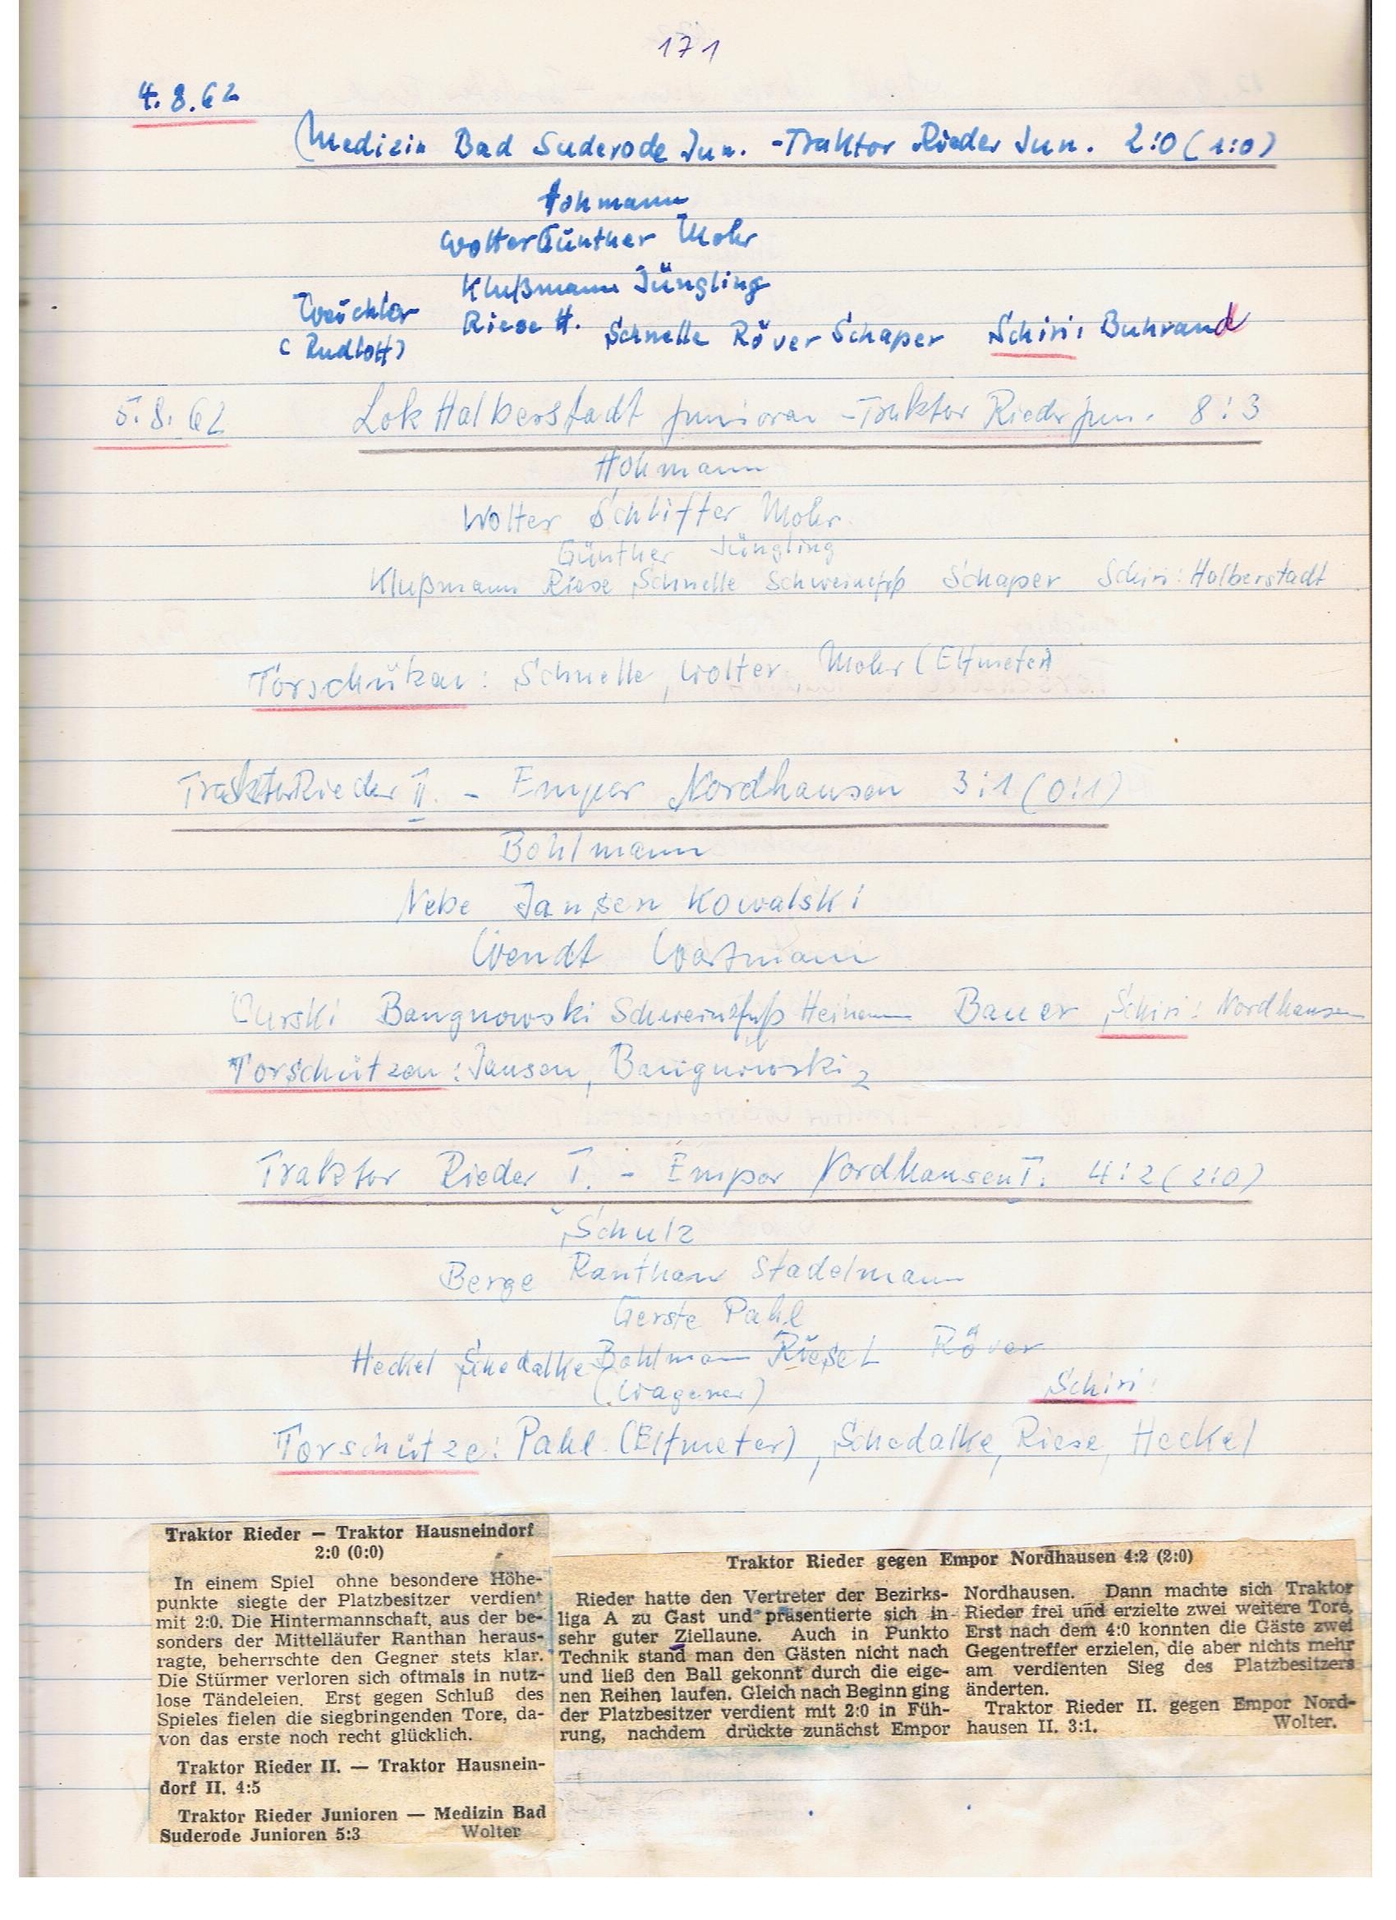 171
4.8.62
Medizin Bad Suderode Jun. - Traktor Rieder Jun. 2:0 (1:0)
Hohmann
Wolter Günther Mohr
Klußmann Jüngling
Riese H. Schnelle Röver Schaper Schiri: Buhrand
(Rudloff)
5.8.62 Lok Halberstadt Junioren - Traktor Rieder jun. 8:3
Hohmann
Wolter Schlifter Mohr
Günther Jüngling
Klußmann Riese Schnelle Schweinefuß Schaper Schiri: Halberstadt
Torschützen: Schnelle, Wolter, Mohr (Elfmeter)
Traktor Rieder II. - Empor Nordhausen 3:1 (0:1)
Bohlmann
Nebe Jansen Kowalski
Wendt Wortmann
Bangnowski Schweinefuß Heinemann Bauer Schiri: Nordhausen
Torschützen: Jansen, Bangnowski 2
Traktor Rieder I. - Empor Nordhausen I. 4:2 (2:0)
Schulz
Berge Ranthan Stadelmann
Gerste Pahl
Heckel Schedalke Bohlmann Riese L Röver
(Wagener) Schiri:
Torschütze: Pahl (Elfmeter), Schedalke, Riese, Heckel
Traktor Rieder — Traktor Hausneindorf
2:0 (0:0)
In einem Spiel ohne besondere Höhe-
punkte siegte der Platzbesitzer verdient
mit 2:0. Die Hintermannschaft, aus der be-
sonders der Mittelläufer Ranthan heraus-
ragte, beherrschte den Gegner stets klar.
Die Stürmer verloren sich oftmals in nutz-
lose Tändeleien. Erst gegen Schluß des
Spieles fielen die siegbringenden Tore, da-
von das erste noch recht glücklich.
Traktor Rieder II. — Traktor Hausnein-
dorf II. 4:5
Traktor Rieder Junioren — Medizin Bad
Suderode Junioren 5:3 Wolter
Traktor Rieder gegen Empor Nordhausen 4:2 (2:0)
Rieder hatte den Vertreter der Bezirks-
liga A zu Gast und präsentierte sich in
sehr guter Ziellaune. Auch in Punkto
Technik stand man den Gästen nicht nach
und ließ den Ball gekonnt durch die eige-
nen Reihen laufen. Gleich nach Beginn ging
der Platzbesitzer verdient mit 2:0 in Füh-
rung, nachdem drückte zunächst Empor
Nordhausen. Dann machte sich Traktor
Rieder frei und erzielte zwei weitere Tore.
Erst nach dem 4:0 konnten die Gäste zwei
Gegentreffer erzielen, die aber nichts mehr
am verdienten Sieg des Platzbesitzers
änderten.
Traktor Rieder II. gegen Empor Nord-
hausen II. 3:1. Wolter.